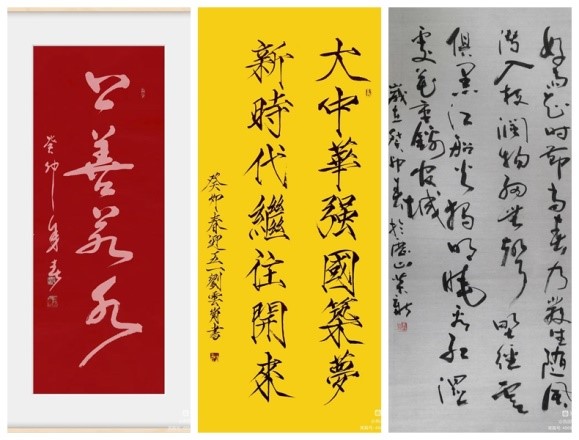 上善若水
癸卯年春
大中華强國築夢
新時代繼往開來
癸卯春迎五一劉雲書
好雨知时節當春乃發生随風
潜入夜潤物細無聲野徑雲
俱黑江船火獨明曉看紅濕
處花重錦官城
歲在癸卯春於山